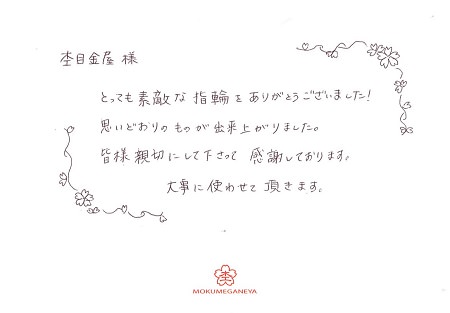 杢目金屋 様
とっても素敵な指輪をありがとうございました!
思いどおりのものが出来上がりました。
皆様親切にして下さって 感謝しております。
大事に使わせて頂きます。
杢
MOKUMEGANEYA